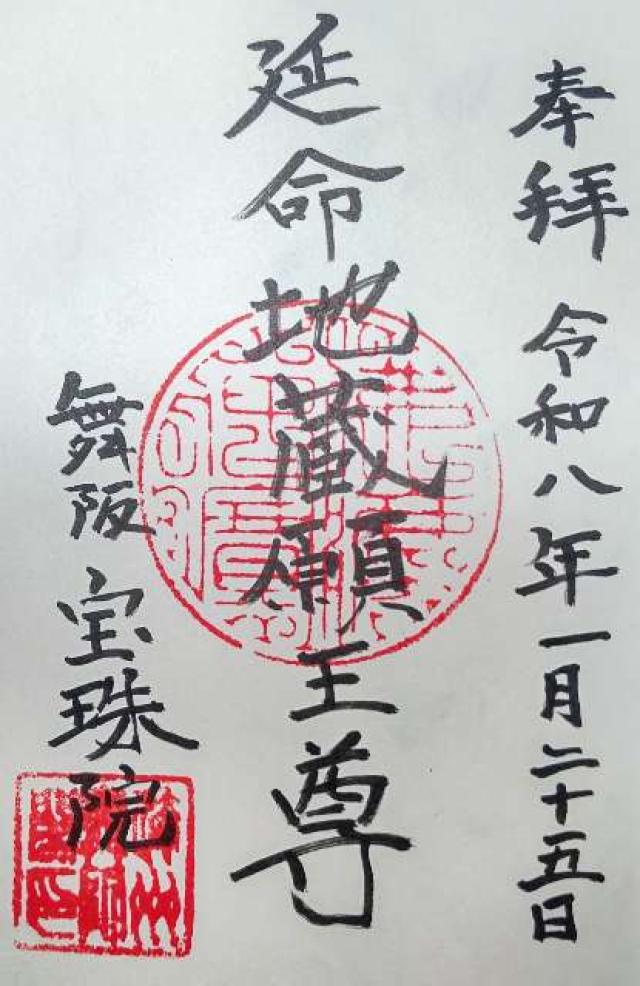 奉拝 令和八年一月二十五日
延命地蔵願王尊
舞阪 宝珠院